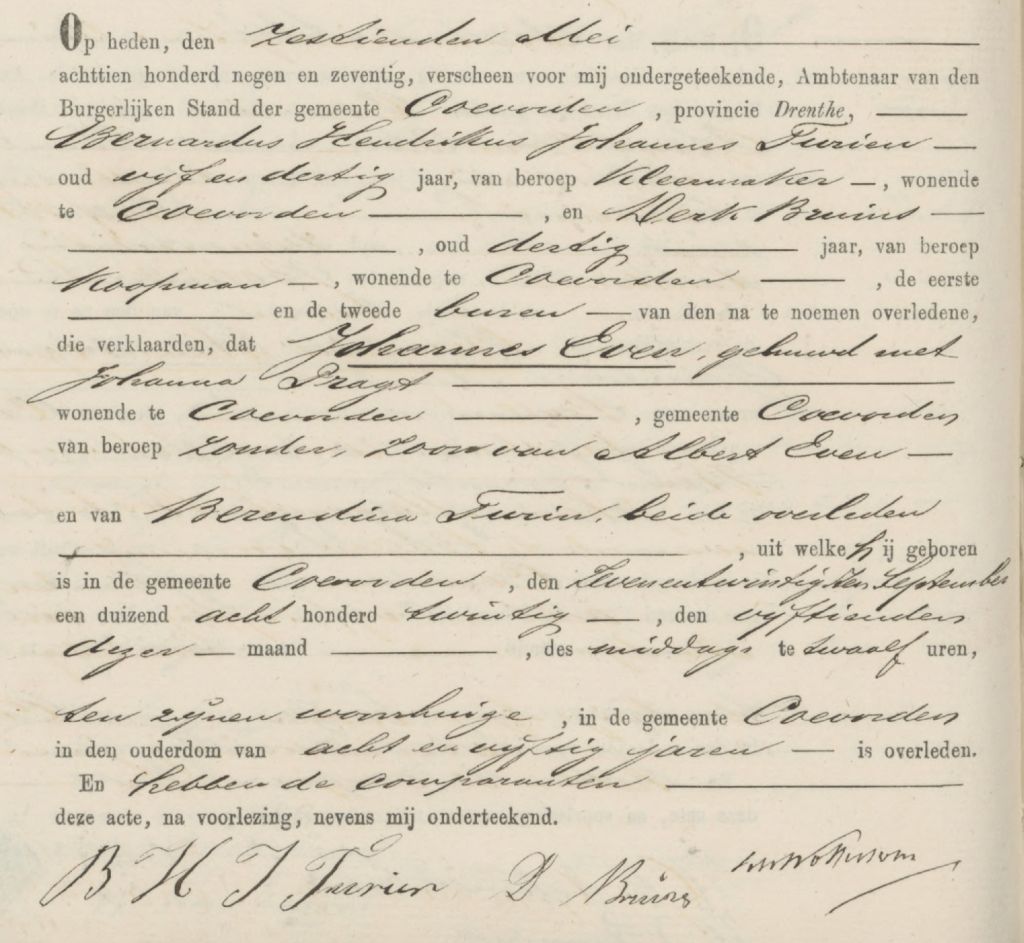 Op heden, den zestienden Mei
achttien honderd negen en zeventig, verscheen voor mij ondergeteekende, Ambtenaar van den
Burgerlijken Stand der gemeente Coevorden, provincie Drenthe,
Bernardus Hendrikus Johannes Turien
oud vijf en dertig jaar, van beroep Kleermaker, wonende
te Coevorden, en Derk Bruins
, oud dertig jaar, van beroep
Koopman, wonende te Coevorden, de eerste
en de tweede buren van den na te noemen overledene,
die verklaarden, dat Johannes Even, gehuwd met
Johanna Pragt
wonende te Coevorden, gemeente Coevorden
van beroep zonder, zoon van Albert Even
en van Berendina Turin, beide overleden
, uit welke hij geboren
is in de gemeente Coevorden, den zevenentwintigsten September
een duizend acht honderd twintig, den vijftienden
dezer maand, des middags te twaalf uren,
ten zijnen woonhuize, in de gemeente Coevorden
in den ouderdom van acht en vijftig jaren is overleden.
En hebben de comparanten
deze acte, na voorlezing, nevens mij onderteekend.
B H J Turien D Bruins